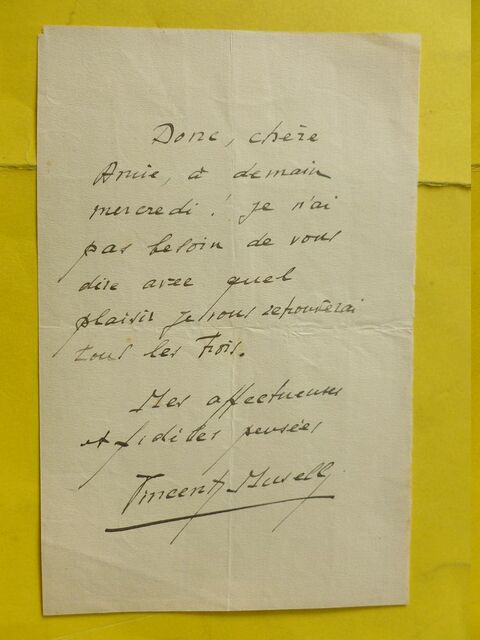 Donc, chère
Amie, à demain
mercredi ! je n'ai
pas besoin de vous
dire avec quel
plaisir je vous retrouverai
tous les Trois.
Mes affectueuses
et fidèles pensées
Vincent Muselli